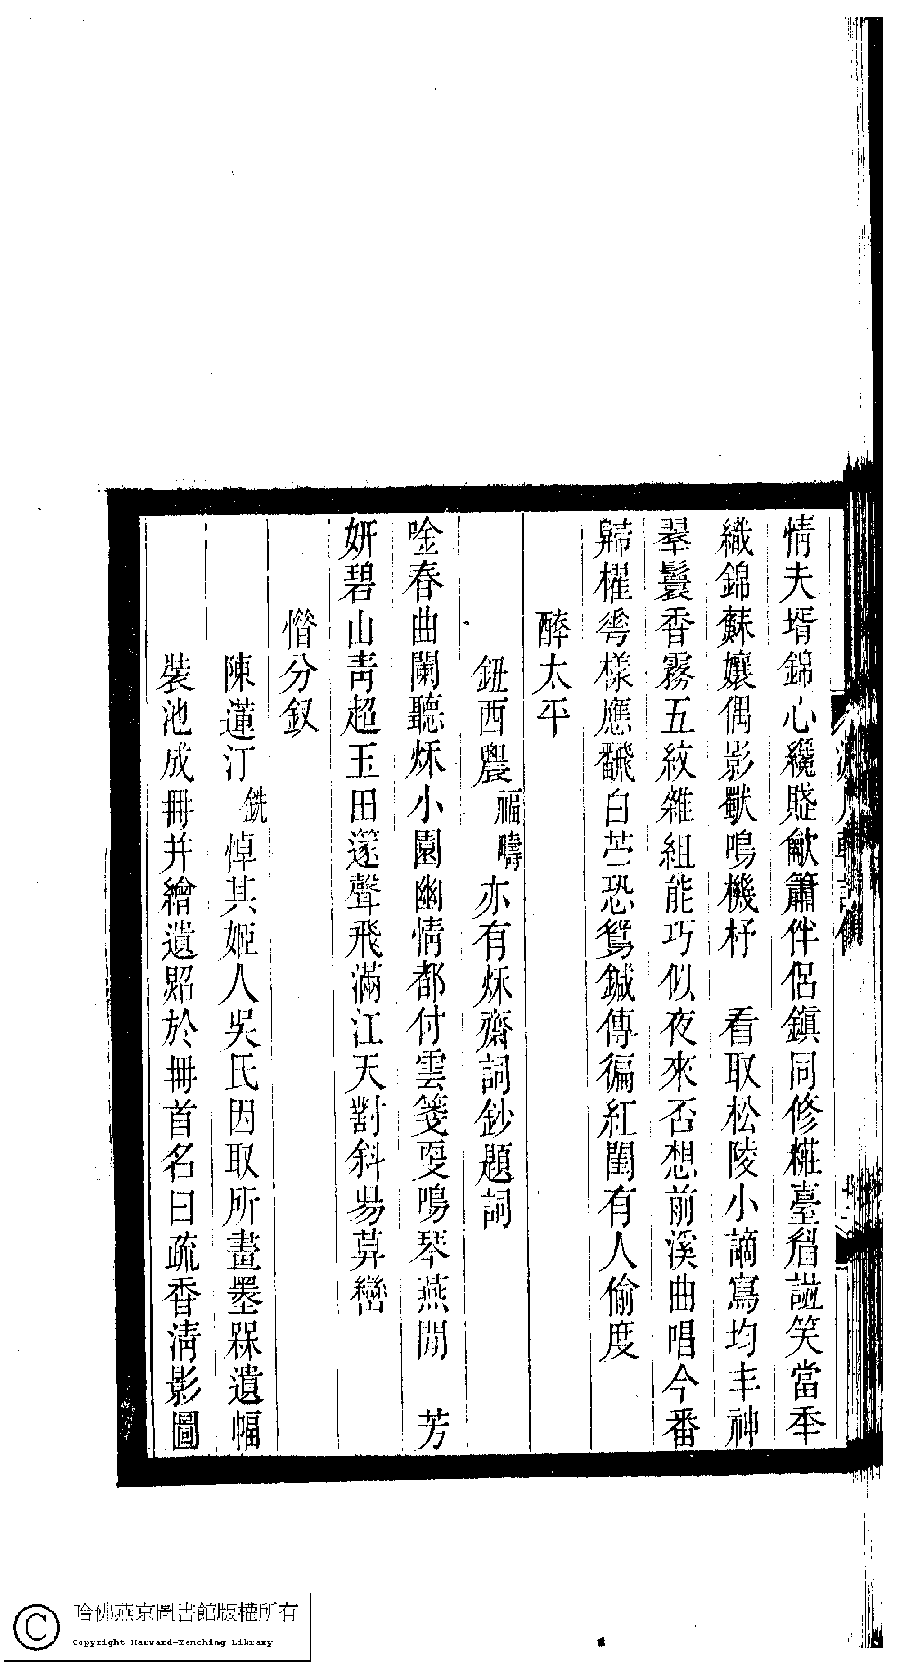 情夫壻錦心纔賤歗簫伴侶鎭同修糚臺眉譜笑當秊
織錦蘇孃偶影獸鳴機杼　看取松陵小謫寫均丰神
翠鬟香霧五紋雜組能巧似夜來否想前溪曲唱今番
歸櫂芎樣應飜白苧恐鴛鍼傳徧紅閨有人偷度
醉太平
鈕西農福疇亦有秌齋詞鈔題詞
唫春曲闌聽秌小園幽情都付雲箋更鳴琴燕閒　芳
妍碧山靑超玉田邃聲飛滿江天對斜昜萛巒
惜分釵
陳蓮汀銑悼其姬人吳氏因取所畫墨槑遺幅
裝池成冊幷繪遺照於冊首名曰疏香淸影圖
哈佛燕京圖書館版權所有
Copyright Harvard-Yenching Library